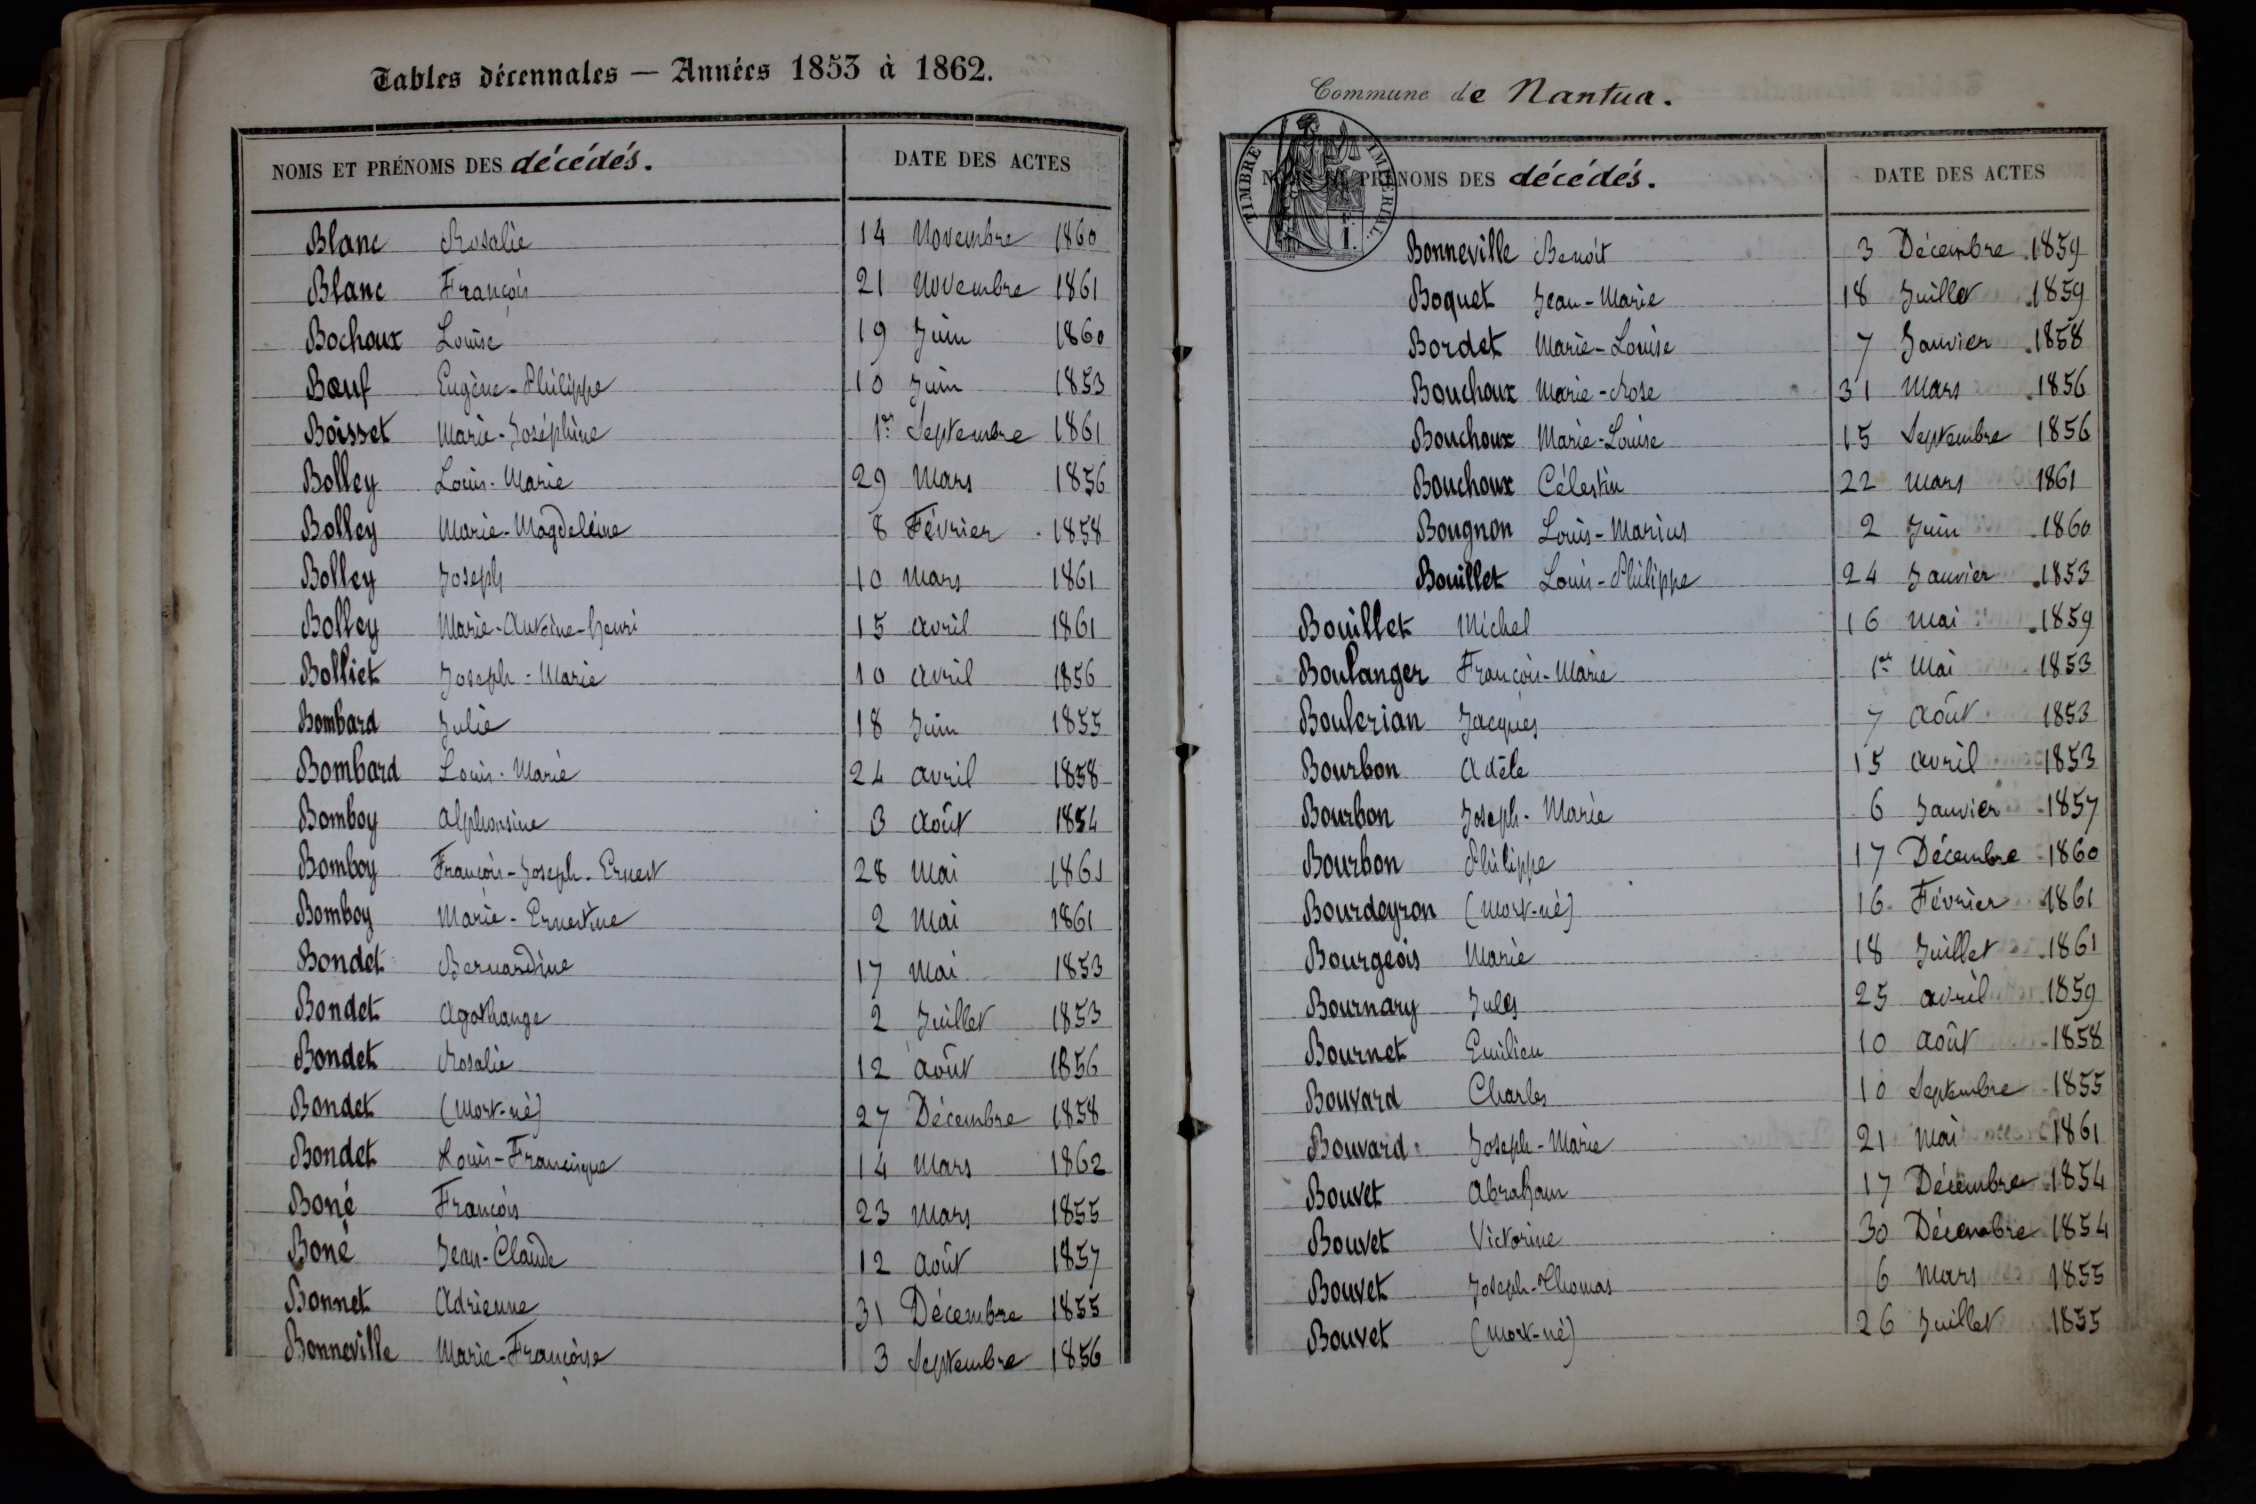 Tables décennales — Années 1853 à 1862.
NOMS ET PRÉNOMS DES décédés. DATE DES ACTES
Blanc Rosalie 14 Novembre 1860
Blanc François 21 Novembre 1861
Bochoux Louise 19 Juin 1860
Bœuf Eugène-Philippe 10 Juin 1853
Boisset Marie-Joséphine 1er Septembre 1861
Bolley Louis-Marie 29 Mars 1856
Bolley Marie-Magdeleine 8 Février 1858
Bolley Joseph 10 Mars 1861
Bolley Marie-Antoine-Henri 15 Avril 1861
Bolliet Joseph-Marie 10 Avril 1856
Bombard Julie 18 Juin 1855
Bombard Louis-Marie 24 Avril 1858
Bomboy Alphonsine 3 Août 1854
Bomboy François-Joseph-Ernest 28 Mai 1861
Bomboy Marie-Ernestine 2 Mai 1861
Bondet Bernardine 17 Mai 1853
Bondet Agathange 2 Juillet 1853
Bondet Rosalie 12 Août 1856
Bondet (Mort-né) 27 Décembre 1858
Bondet Louis-Francisque 14 Mars 1862
Boné François 23 Mars 1855
Boné Jean-Claude 12 Août 1857
Bonnet Adrienne 31 Décembre 1855
Bonneville Marie-Françoise 3 Septembre 1856
Commune de Nantua.
TIMBRE IMPÉRIAL.
NOMS ET PRÉNOMS DES décédés. DATE DES ACTES
Bonneville Benoît 3 Décembre 1859
Boquet Jean-Marie 18 Juillet 1859
Bordet Marie-Louise 7 Janvier 1858
Bouchoux Marie-Rose 31 Mars 1856
Bouchoux Marie-Louise 15 Septembre 1856
Bouchoux Célestin 22 Mars 1861
Bougnon Louis-Marius 2 Juin 1860
Bouillet Louis-Philippe 24 Janvier 1853
Bouillet Michel 16 Mai 1859
Boulanger François-Marie 1er Mai 1853
Boulerian Jacques 7 Août 1853
Bourbon Adèle 15 Avril 1853
Bourbon Joseph-Marie 6 Janvier 1857
Bourbon Philippe 17 Décembre 1860
Bourdeyron (Mort-né) 16 Février 1861
Bourgeois Marie 18 Juillet 1861
Bournary Jules 25 Avril 1859
Bournet Emilien 10 Août 1858
Bouvard Charles 10 Septembre 1855
Bouvard Joseph-Marie 21 Mai 1861
Bouvet Abraham 17 Décembre 1854
Bouvet Victorine 30 Décembre 1854
Bouvet Joseph-Thomas 6 Mars 1855
Bouvet (Mort-né) 26 Juillet 1855